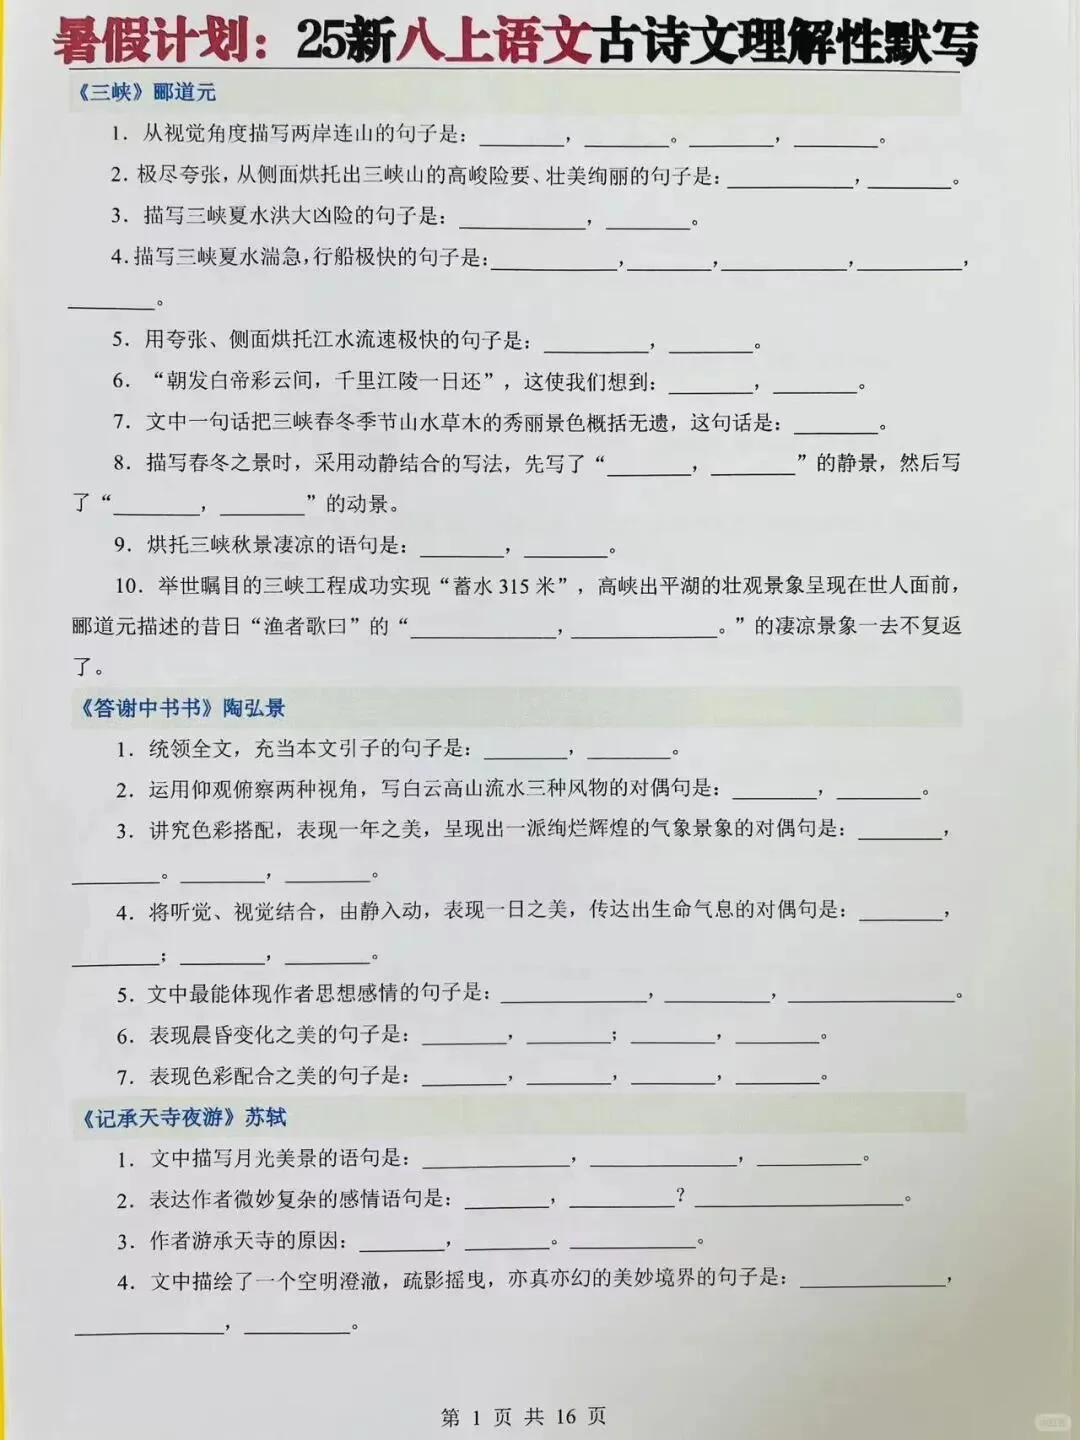 暑假计划：25新八上语文古诗文理解性默写
《三峡》郦道元
1．从视觉角度描写两岸连山的句子是：________，________。________，________。
2．极尽夸张，从侧面烘托出三峡山的高峻险要、壮美绚丽的句子是：____________，________。
3．描写三峡夏水洪大凶险的句子是：____________，________。
4．描写三峡夏水湍急，行船极快的句子是：____________，________，____________，__________，
________。
5．用夸张、侧面烘托江水流速极快的句子是：__________，________。
6．“朝发白帝彩云间，千里江陵一日还”，这使我们想到：________，________。
7．文中一句话把三峡春冬季节山水草木的秀丽景色概括无遗，这句话是：________。
8．描写春冬之景时，采用动静结合的写法，先写了“________，________”的静景，然后写
了“________，________”的动景。
9．烘托三峡秋景凄凉的语句是：________，________。
10．举世瞩目的三峡工程成功实现“蓄水 315 米”，高峡出平湖的壮观景象呈现在世人面前，
郦道元描述的昔日“渔者歌曰”的“______________，______________。”的凄凉景象一去不复返
了。
《答谢中书书》陶弘景
1．统领全文，充当本文引子的句子是：________，________。
2．运用仰观俯察两种视角，写白云高山流水三种风物的对偶句是：________，________。
3．讲究色彩搭配，表现一年之美，呈现出一派绚烂辉煌的气象景象的对偶句是：________，
________。________，________。
4．将听觉、视觉结合，由静入动，表现一日之美，传达出生命气息的对偶句是：________，
________；________，________。
5．文中最能体现作者思想感情的句子是：______________，__________，________________。
6．表现晨昏变化之美的句子是：________，________；________，________。
7．表现色彩配合之美的句子是：________，________，________，________。
《记承天寺夜游》苏轼
1．文中描写月光美景的语句是：______________，______________，__________。
2．表达作者微妙复杂的感情语句是：________，__________？____________________。
3．作者游承天寺的原因：________，________。____________。
4．文中描绘了一个空明澄澈，疏影摇曳，亦真亦幻的美妙境界的句子是：______________，
______________，__________。
第 1 页 共 16 页